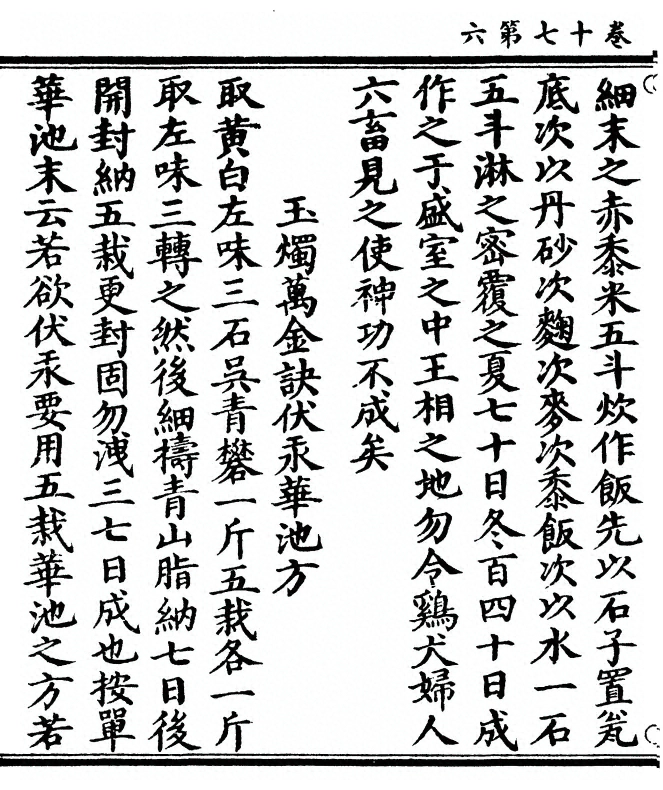 卷十七第六
細末之赤黍米五斗炊作飯先以石子置瓮
底次以丹砂次麴次麥次黍飯次以水一石
五斗淋之密覆之夏七十日冬百四十日成
作之于盛室之中王相之地勿令鷄犬婦人
六畜見之使神功不成矣
玉燭萬金訣伏汞華池方
取黃白左味三石吳青礬一斤五栽各一斤
取左味三轉之然後細擣青山脂納七日後
開封納五栽更封固勿洩三七日成也按單
華池末云若欲伏汞要用五栽華池之方若